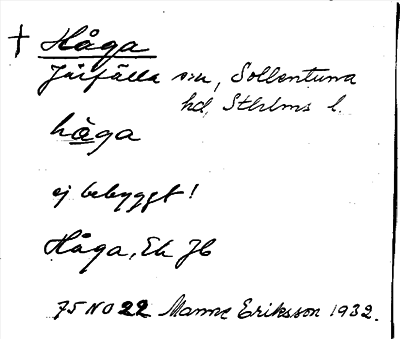 † Håga
Järfälla sn, Sollentuna
hd, Sthlms l.
håga
ej bebyggt!
Håga, Ek JB
75 NO 22 Manne Eriksson 1932.